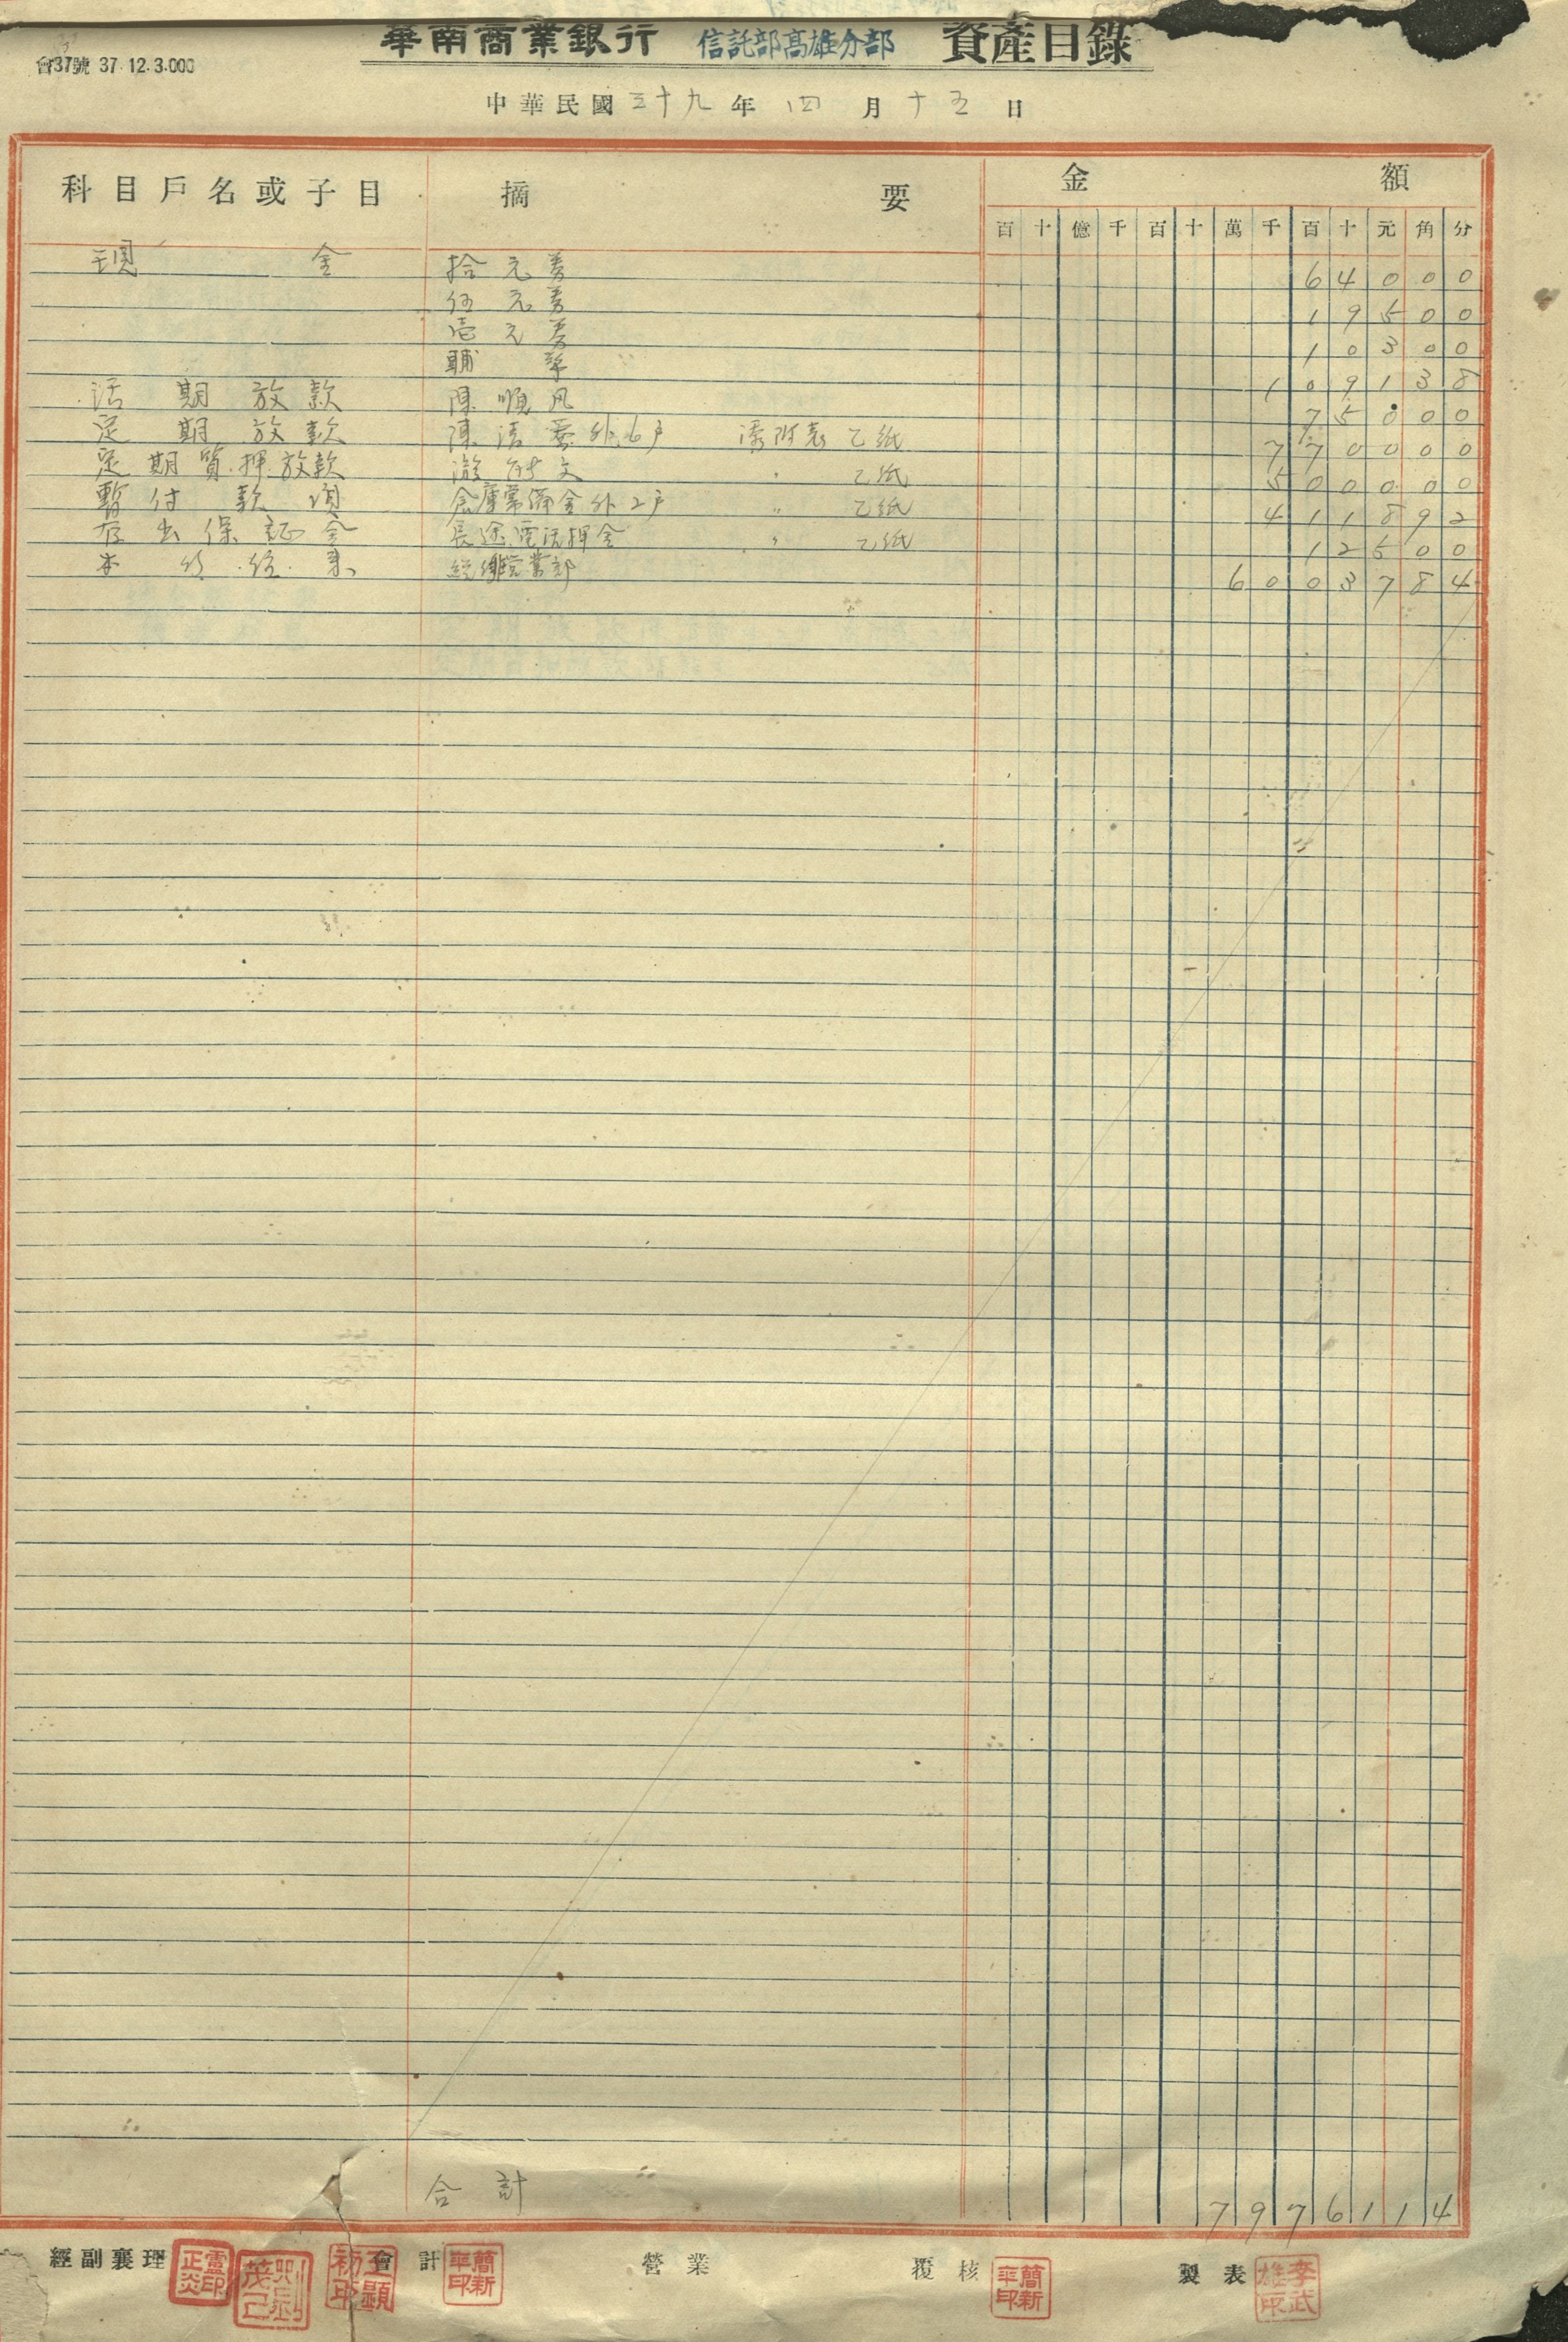 華南商業銀行 信託部高雄分部 資產目錄
會37號 37.12.3.000
中華民國三十九年四月十五日
科目戶名或子目 摘要 金額
百十億千百十萬千百十元角分
現金 拾元券 64000
伍元券 19500
壱元券 10300
輔幣 109138
活期放款 陳順風 75000
定期放款 陳清 外6戶 添附表乙紙 770000
定期質押放款 文 〃 乙紙 500000
暫付款項 倉庫常備金外2戶 〃 乙紙 411892
存出保証金 長途電話押金 〃 乙紙 12500
本 総 營業部 6003784
合計 7976114
經副襄理 會計 營業 覆核 製表
簡新 印 簡新 印 李武雄